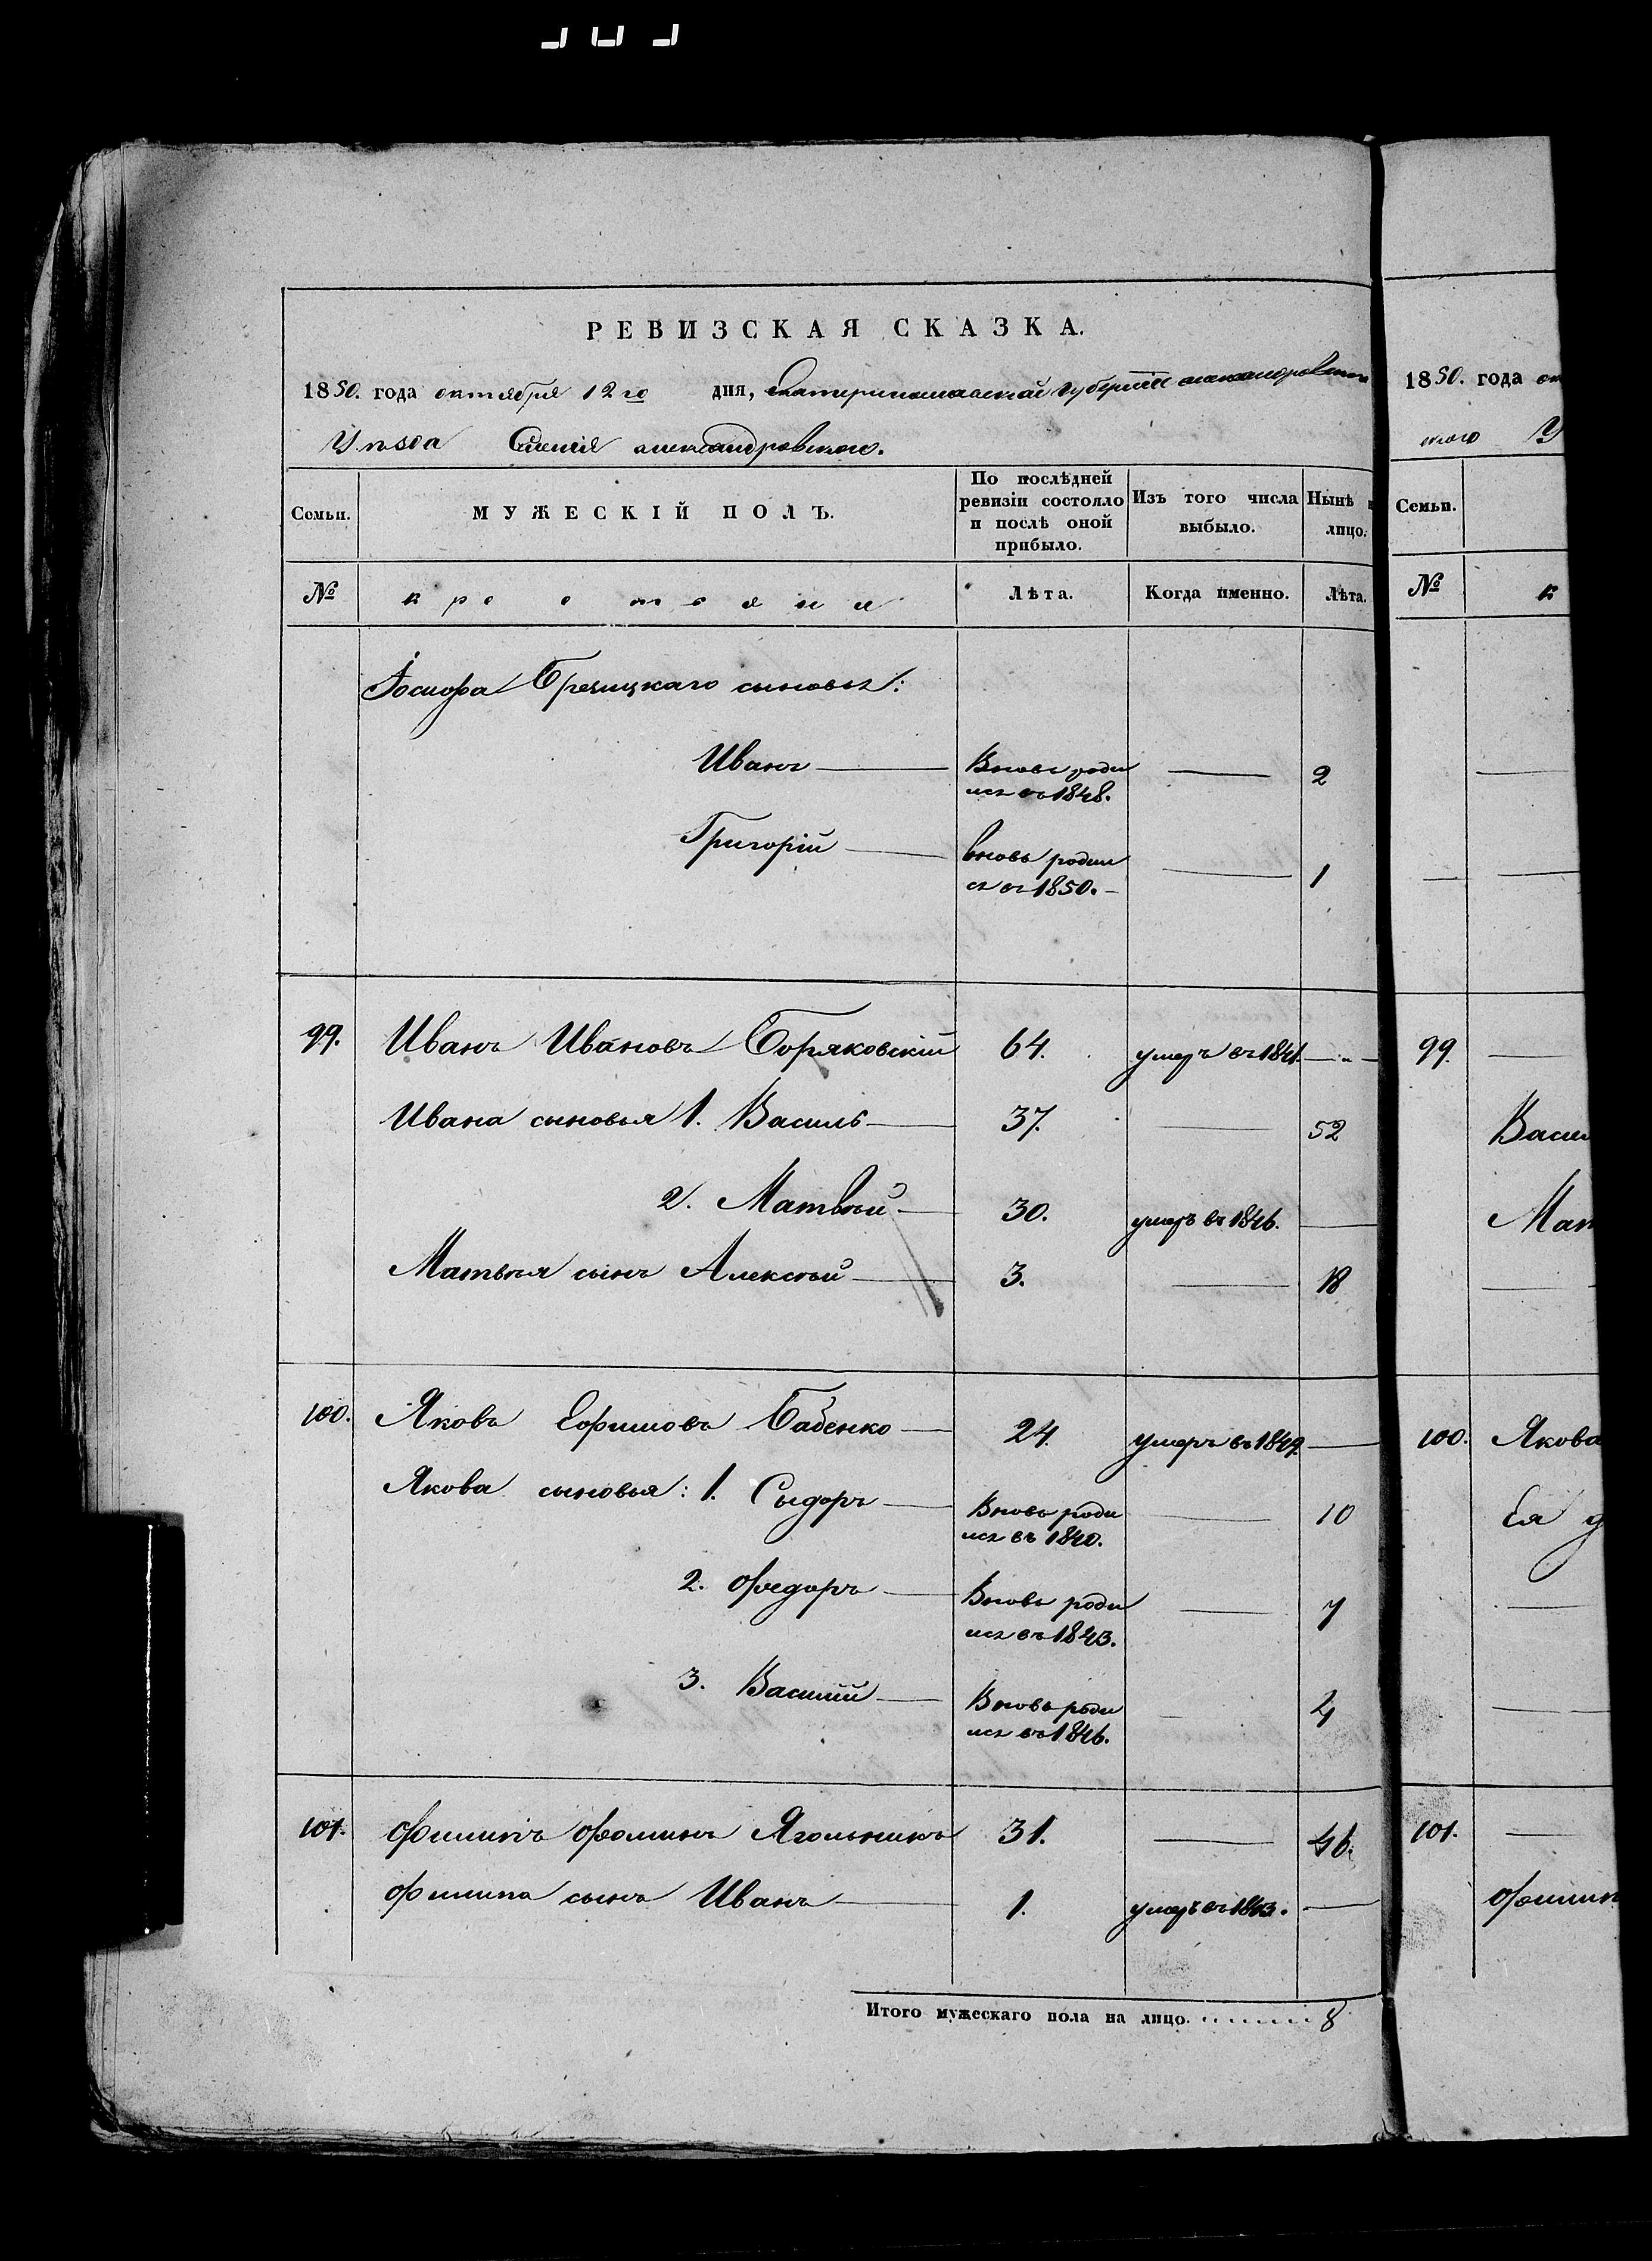 РЕВИЗСКАЯ СКАЗКА.
1850. года октября 12го дня, Екатеринославской Губерніи Александровскаго
Уѣзда Селенія Александровскаго.
Семьи. МУЖЕСКІЙ ПОЛЪ. По послѣдней ревизіи состояло и послѣ оной прибыло. Изъ того числа выбыло. Нынѣ лицо.
№ крестьяни Лѣта. Когда именно. Лѣта.
Іосифа сыновья:
Иванъ Вновь роди лся въ 1848. 2
Григорій вновь родил ся въ 1850. 1
99. Иванъ Ивановъ Боряковскій 64. умеръ въ 1841.
Ивана сыновья 1. Василь 37. 52
2. Матвѣй 30. умеръ въ 1846.
Матвѣя сынъ Алексѣй 3. 18
100. Яковъ Ефимовъ Бабенко 24. умеръ въ 1849.
Якова сыновья: 1. Сыдоръ Вновь роди лся въ 1840. 10
2. Федоръ Вновь роди лся въ 1843. 7
3. Василій Вновь роди лся въ 1846. 4
101. Филипъ Фоминъ Ягольникъ 31. 46.
Филипа сынъ Иванъ 1. умеръ въ 1843.
Итого мужескаго пола на лицо. 8
1850. года ок
скаго У
Семьи.
№ к
99.
Васи
Мат
100. Якова
Ея д
101.
Филип